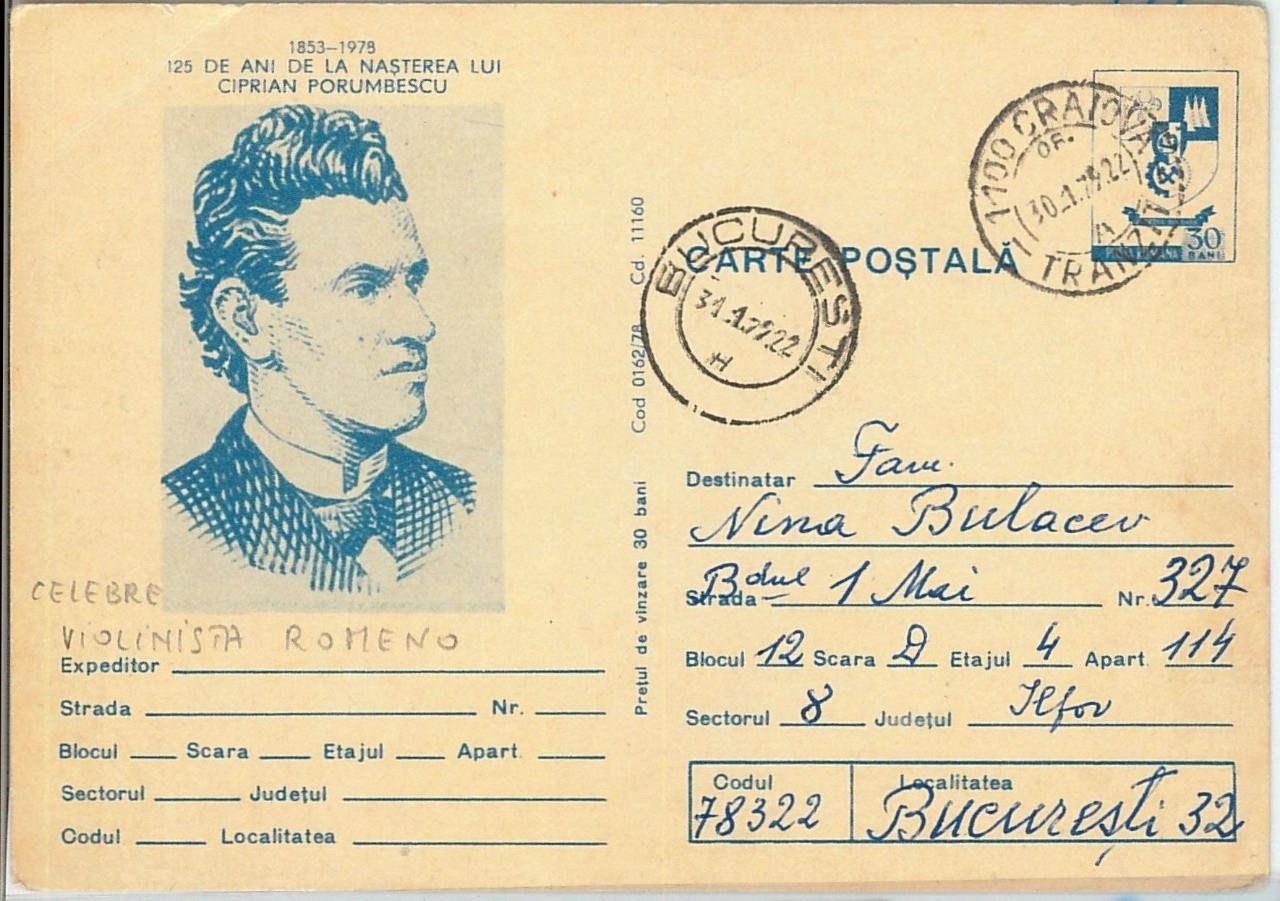 1853–1978
125 DE ANI DE LA NAȘTEREA LUI
CIPRIAN PORUMBESCU
CELEBRE
VIOLINISTA ROMENO
Expeditor
Strada Nr.
Blocul Scara Etajul Apart.
Sectorul Județul
Codul Localitatea
Prețul de vînzare 30 bani Cod 0162/78 Cd. 11160
CARTE POȘTALĂ
BUCUREȘTI
31.1.79.22
H
1100 CRAIOVA
OF.
30.1.79.22
A
TRANZIT
30
BANI
Destinatar Fam.
Nina Bulacev
Strada Bdul 1 Mai Nr. 327
Blocul 12 Scara D Etajul 4 Apart. 114
Sectorul 8 Județul Ilfov
Codul Localitatea
78322 București 32